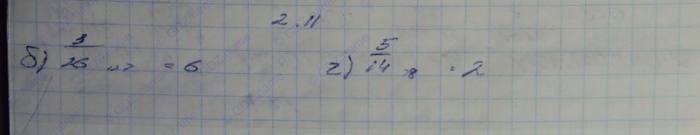 2.11
б) 3/26 = 6 г) 5/14 = 2